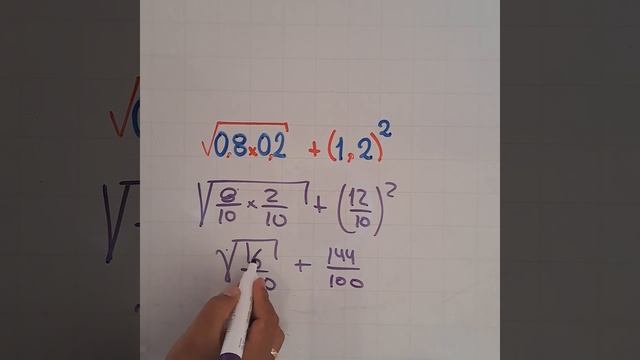 √0,8×0,2 + (1,2)²
√8/10 × 2/10 + (12/10)²
√ + 144/100